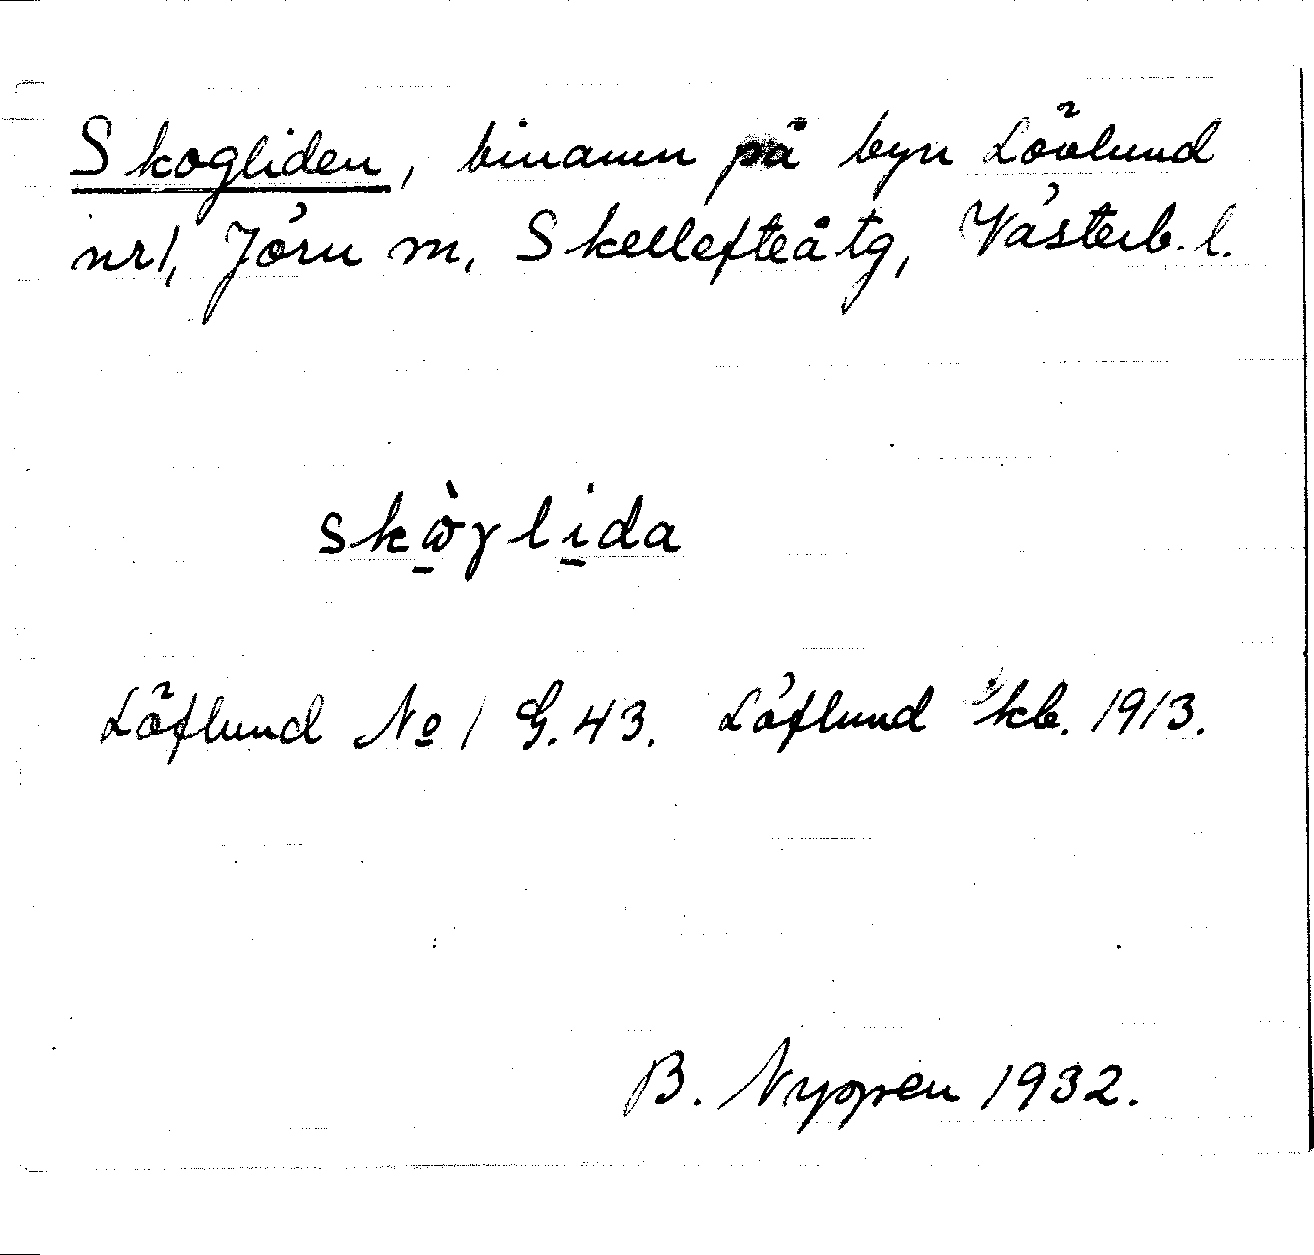 Skogliden, binamn på byn Lövlund
nr 1, Jörn sn, Skellefteå tg, Västerb. l.
skὼ̱γli̱da
Löflund No 1 G. 43. Löflund kb. 1913.
B. Nyppen 1932.